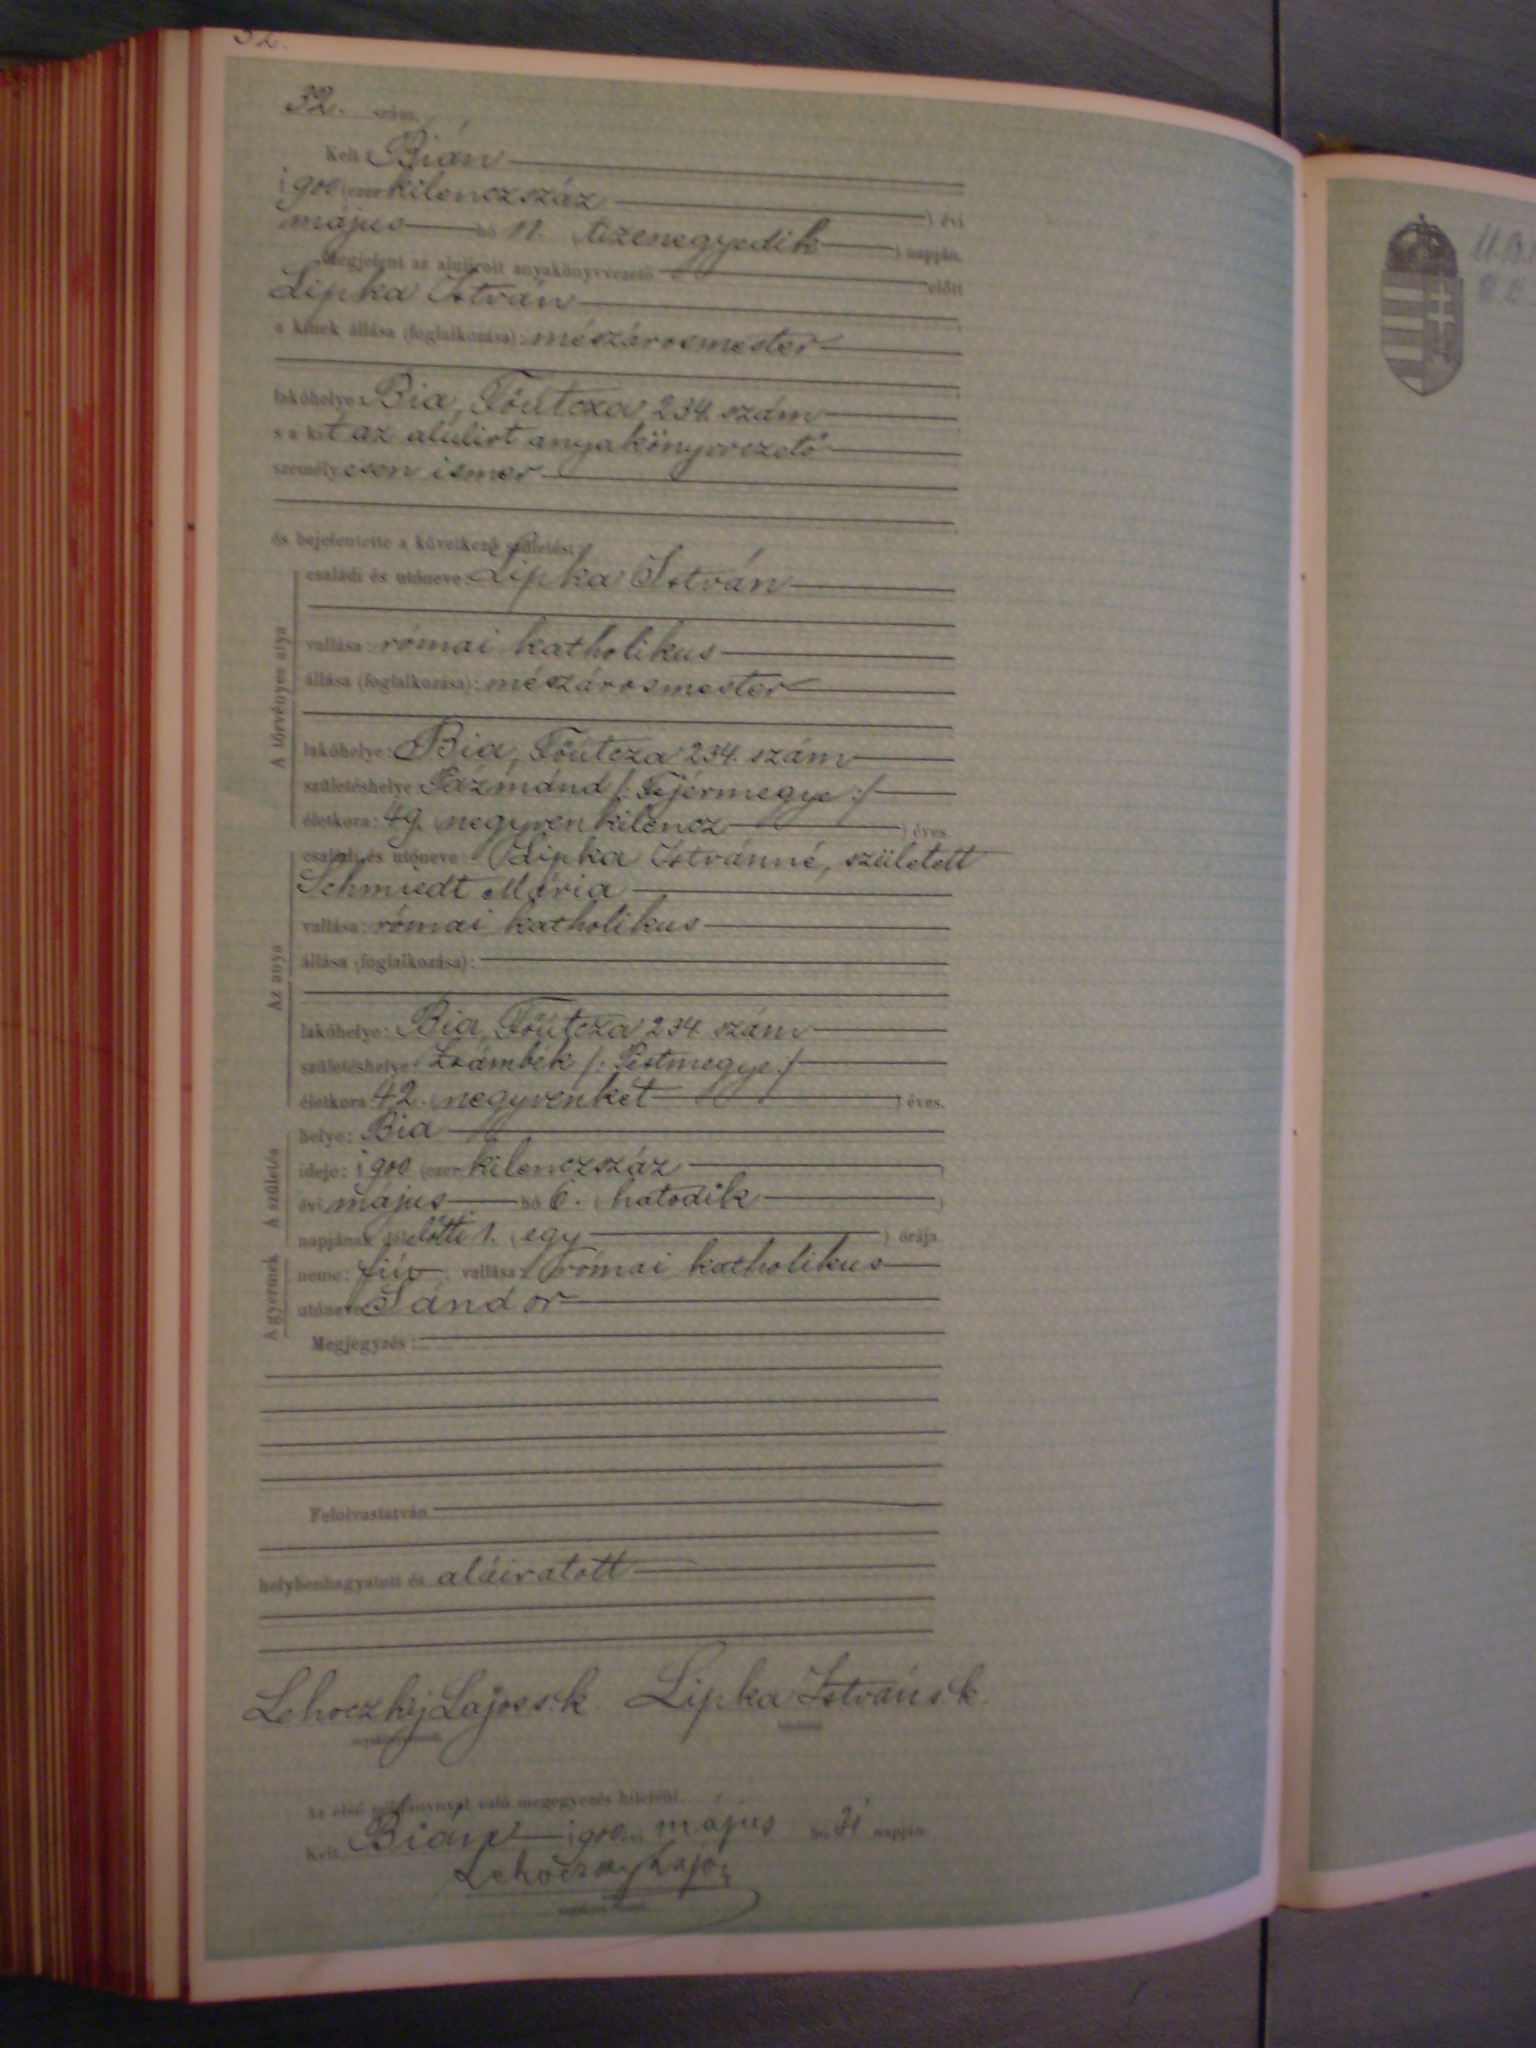 32.
32. szám.
Kelt Bián
1900 (ezer kilenczszáz ) évi
május hó 11. (tizenegyedik ) napján.
Megjelent az alulírott anyakönyvvezető előtt
Lipka István
a kinek állása (foglalkozása): mészárosmester
lakóhelye: Bia, Főútcza 234. szám
s a kit az alúlirt anyakönyvvezető
személyesen ismer
és bejelentette a következő születést:
A törvényes atya
családi és utóneve: Lipka István
vallása: római katholikus
állása (foglalkozása): mészárosmester
lakóhelye: Bia, Főútcza 234. szám
születéshelye: Pázmánd /: Fejérmegye :/
életkora: 49. (negyvenkilencz ) éves.
Az anya
családi és utóneve: Lipka Istvánné, született
Schmiedt Mária
vallása: római katholikus
állása (foglalkozása):
lakóhelye: Bia, Főútcza 234. szám
születéshelye: Zsámbék /: Pestmegye :/
életkora: 42. (negyvenkét ) éves.
A születés
helye: Bia
ideje: 1900 (ezer kilenczszáz )
évi május hó 6. (hatodik )
napjának délelőtti 1. (egy ) órája.
A gyermek
neme: fiú vallása: római katholikus
utóneve: Sándor
Megjegyzés:
Felolvastatván
helybenhagyatott és aláiratott
Lehoczky Lajos s.k. Lipka István s.k.
anyakönyvvezető bejelentő
Az első példánynyal való megegyezés hiteléül.
Kelt Bián 1900 évi május hó 31 napján
Lehoczky Lajos